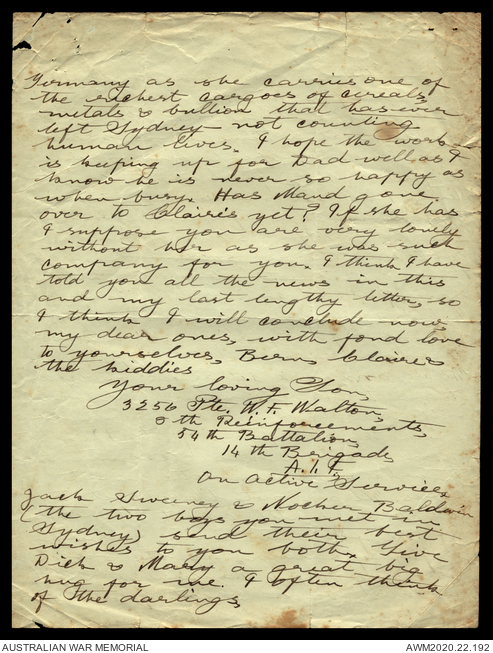 Germany as she carries one of
the richest cargoes of cereals,
metals & bullion that has ever
left Sydney not counting
human lives. I hope the work
is keeping up for Dad well as I
know he is never so happy as
when busy. Has Maud gone
over to Claire's yet? If she has
I suppose you are very lonely
without her as she was such
company for you. I think I have
told you all the news in this
and my last lengthy letter, so
I think I will conclude now
my dear ones, with fond love
to yourselves, Bern, Claire &
the kiddies
Your loving Son,
3256 Pte. W. F. Walton,
8th Reinforcements,
54th Battalion,
14th Brigade,
A.I.F.
On Active Service.
Jack Sweeney & Baldwin
(the two boys you met in
Sydney) send their best
wishes to you both. Give
Dick & Mary a great big
hug for me. I often think
of the darlings,
AUSTRALIAN WAR MEMORIAL
AWM2020.22.192